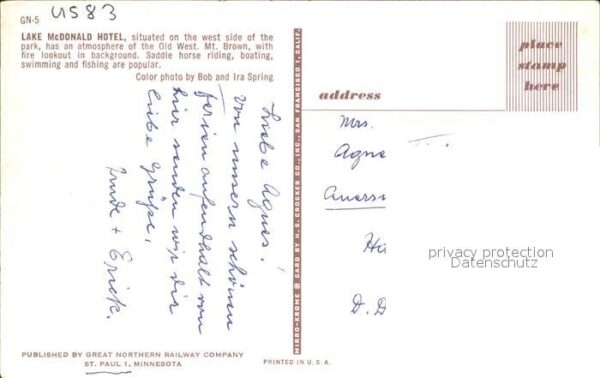 US83
GN-5
LAKE McDONALD HOTEL, situated on the west side of the
park, has an atmosphere of the Old West. Mt. Brown, with
fire lookout in background. Saddle horse riding, boating,
swimming and fishing are popular.
Color photo by Bob and Ira Spring
Liebe Agnes!
Von unsern schönen
Ferienaufenthalt von
hier senden wir dir
liebe Grüße,
Trude + Erick.
PUBLISHED BY GREAT NORTHERN RAILWAY COMPANY
ST. PAUL 1, MINNESOTA
MIRRO-KROME ® CARD BY H. S. CROCKER CO., INC., SAN FRANCISCO 1, CALIF.
PRINTED IN U. S. A.
place
stamp
here
address
Mrs.
Agne
Ha
D.D
privacy protection
Datenschutz